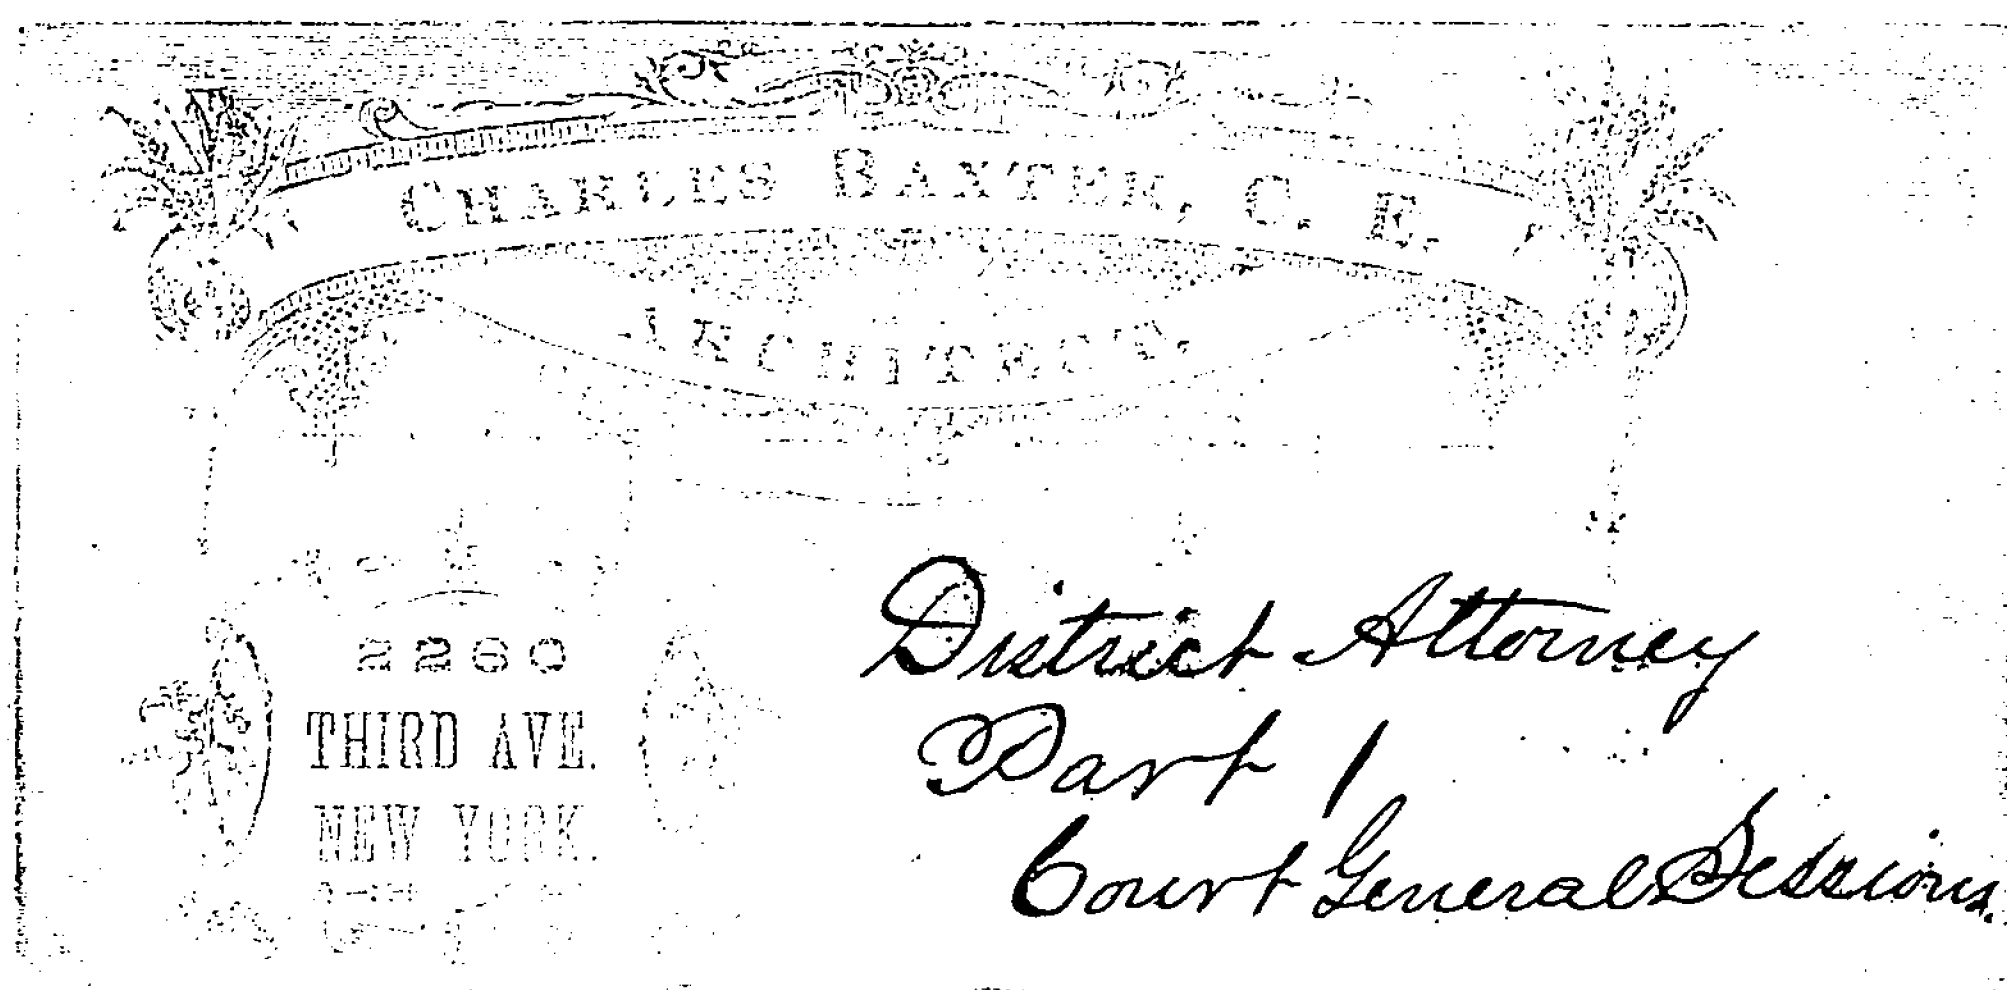 CHARLES BAXTER, C. E.
ARCHITECT.
2260
THIRD AVE.
NEW YORK.
District Attorney
Part 1
Court General Sessions.